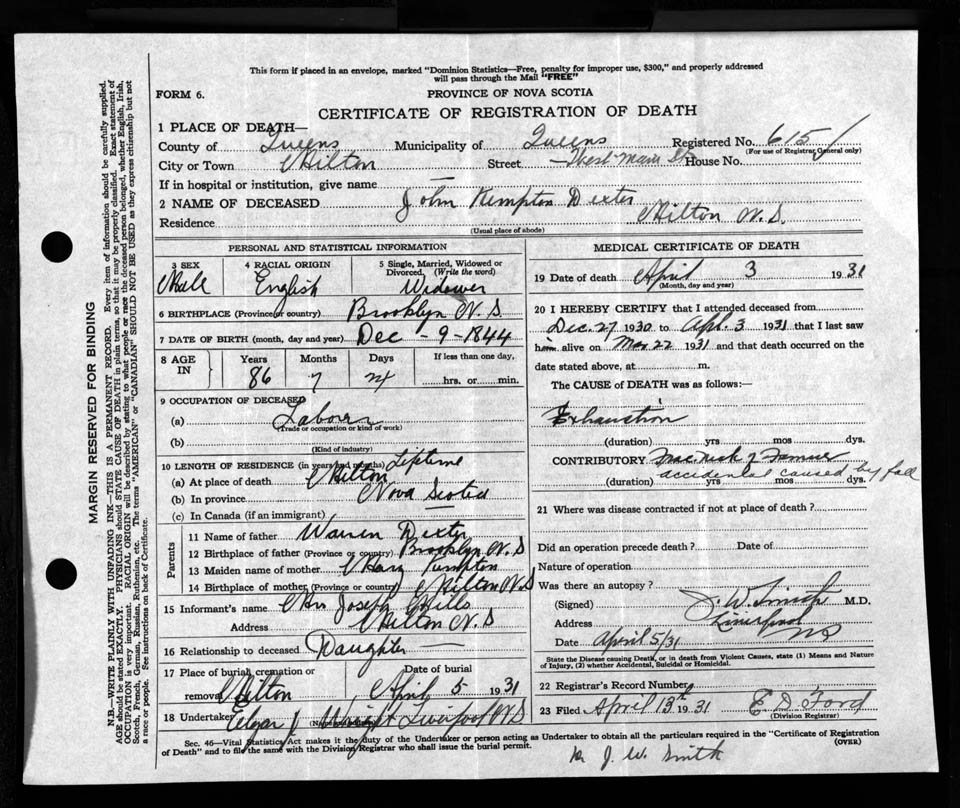 This form if placed in an envelope, marked "Dominion Statistics—Free, penalty for improper use, $300," and properly addressed
will pass through the Mail "FREE"
FORM 6.
PROVINCE OF NOVA SCOTIA
CERTIFICATE OF REGISTRATION OF DEATH
1 PLACE OF DEATH—
County of Queens Municipality of Queens Registered No. 615
(For use of Registrar General only)
City or Town Milton Street West Main St House No.
If in hospital or institution, give name
2 NAME OF DECEASED John Kempton Dexter
Residence Milton N.S.
(Usual place of abode)
PERSONAL AND STATISTICAL INFORMATION
3 SEX 4 RACIAL ORIGIN 5 Single, Married, Widowed or Divorced, (Write the word)
Male English Widower
6 BIRTHPLACE (Province or country) Brooklyn N.S.
7 DATE OF BIRTH (month, day and year) Dec - 9 - 1844
8 AGE IN Years Months Days If less than one day,
86 7 24 hrs. or min.
9 OCCUPATION OF DECEASED
(a) Laborer
(Trade or occupation or kind of work)
(b)
(Kind of industry)
10 LENGTH OF RESIDENCE (in years and months) Lifetime
(a) At place of death Milton
(b) In province Nova Scotia
(c) In Canada (if an immigrant)
Parents
11 Name of father Warren Dexter
12 Birthplace of father (Province or country) Brooklyn N.S
13 Maiden name of mother Mary Kempton
14 Birthplace of mother (Province or country) Milton N.S
15 Informant's name Mrs Joseph Mills
Address Milton N.S
16 Relationship to deceased Daughter
17 Place of burial, cremation or removal Milton Date of burial April 5 1931
18 Undertaker Wright Liverpool N.S
MEDICAL CERTIFICATE OF DEATH
19 Date of death April 3 1931
(Month, day and year)
20 I HEREBY CERTIFY that I attended deceased from
Dec. 27 1930 to Apl. 3 1931 that I last saw
him alive on Mar 22 1931 and that death occurred on the
date stated above, at m.
The CAUSE of DEATH was as follows:—
Exhaustion
(duration) yrs mos dys.
CONTRIBUTORY Frac. neck of Femur
accidental caused by fall
(duration) yrs. mos dys.
21 Where was disease contracted if not at place of death?
Did an operation precede death? Date of
Nature of operation
Was there an autopsy?
(Signed) J. W. Smith M.D.
Address Liverpool NS
Date April 5/31
State the Disease causing Death, or in death from Violent Causes, state (1) Means and Nature
of Injury, (2) whether Accidental, Suicidal or Homicidal.
22 Registrar's Record Number
23 Filed April 13th 1931 E. D. Ford
(Division Registrar)
Sec. 46—Vital Statistics Act makes it the duty of the Undertaker or person acting as Undertaker to obtain all the particulars required in the "Certificate of Registration
of Death" and to file the same with the Division Registrar who shall issue the burial permit. (OVER)
Dr J. W. Smith
MARGIN RESERVED FOR BINDING
N.B.—WRITE PLAINLY WITH UNFADING INK—THIS IS A PERMANENT RECORD. Every item of information should be carefully supplied.
AGE should be stated EXACTLY. PHYSICIANS should STATE CAUSE OF DEATH in plain terms, so that it may be properly classified. Exact statement of
OCCUPATION is very important. RACIAL ORIGIN will be described by stating to what people or race the deceased person belonged, whether English, Irish,
Scotch, French, German, Russian, Ruthenian, etc. The terms "AMERICAN" or "CANADIAN" SHOULD NOT BE USED as they express citizenship but not
a race or people. See instructions on back of Certificate.